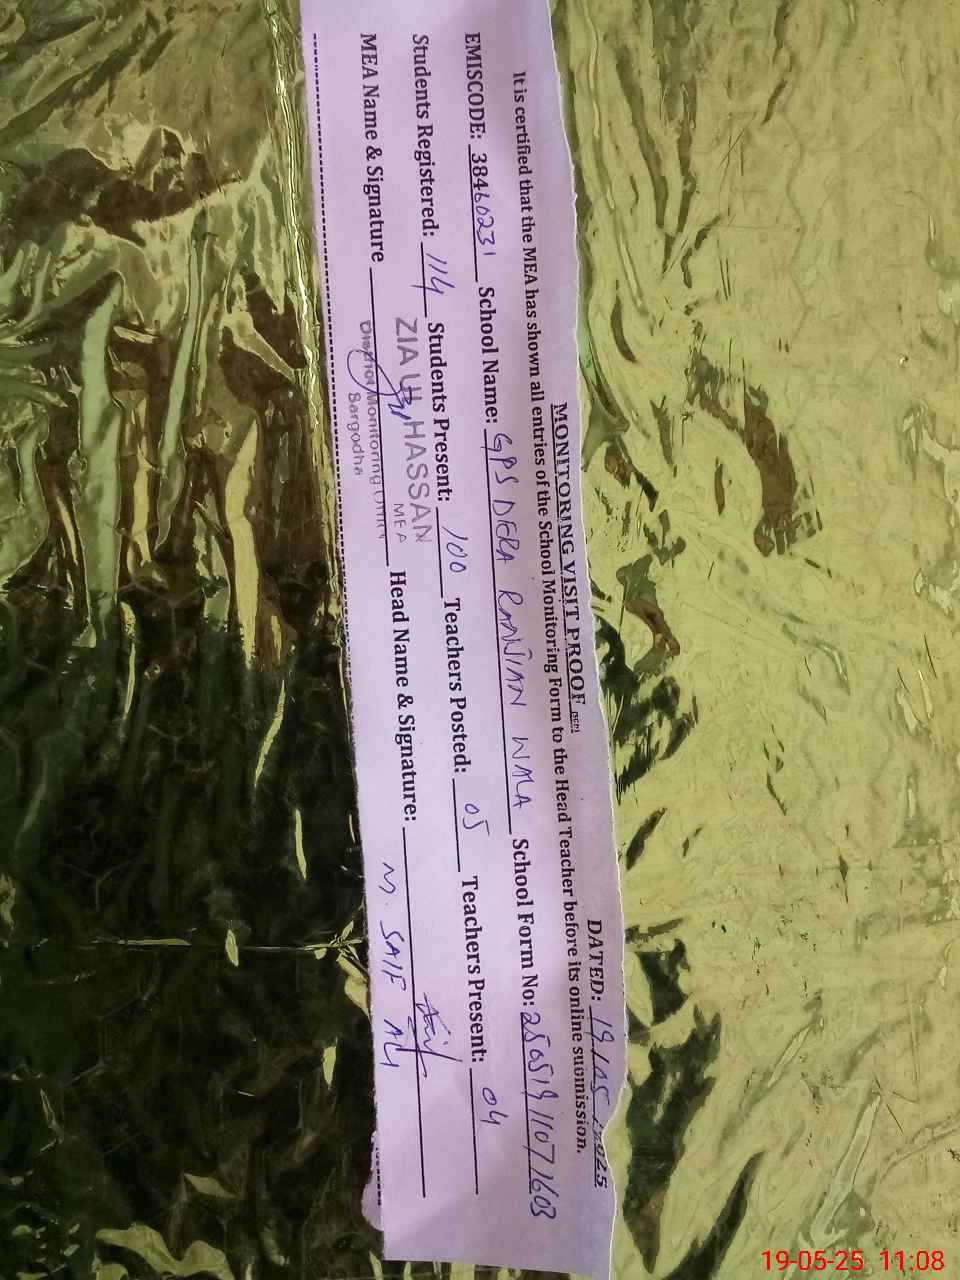 MONITORING VISIT PROOF
DATED: 19/05/2025
It is certified that the MEA has shown all entries of the School Monitoring Form to the Head Teacher before its online submission.
EMISCODE: 38460231 School Name: GPS DERA RAANJAN WALA School Form No: 25051911071603
Students Registered: 114 Students Present: 100 Teachers Posted: 05 Teachers Present: 04
MEA Name & Signature Head Name & Signature:
ZIA UL HASSAN
MEA
District Monitoring Office
Sargodha
M. SAIF ALI
19-05-25 11:08